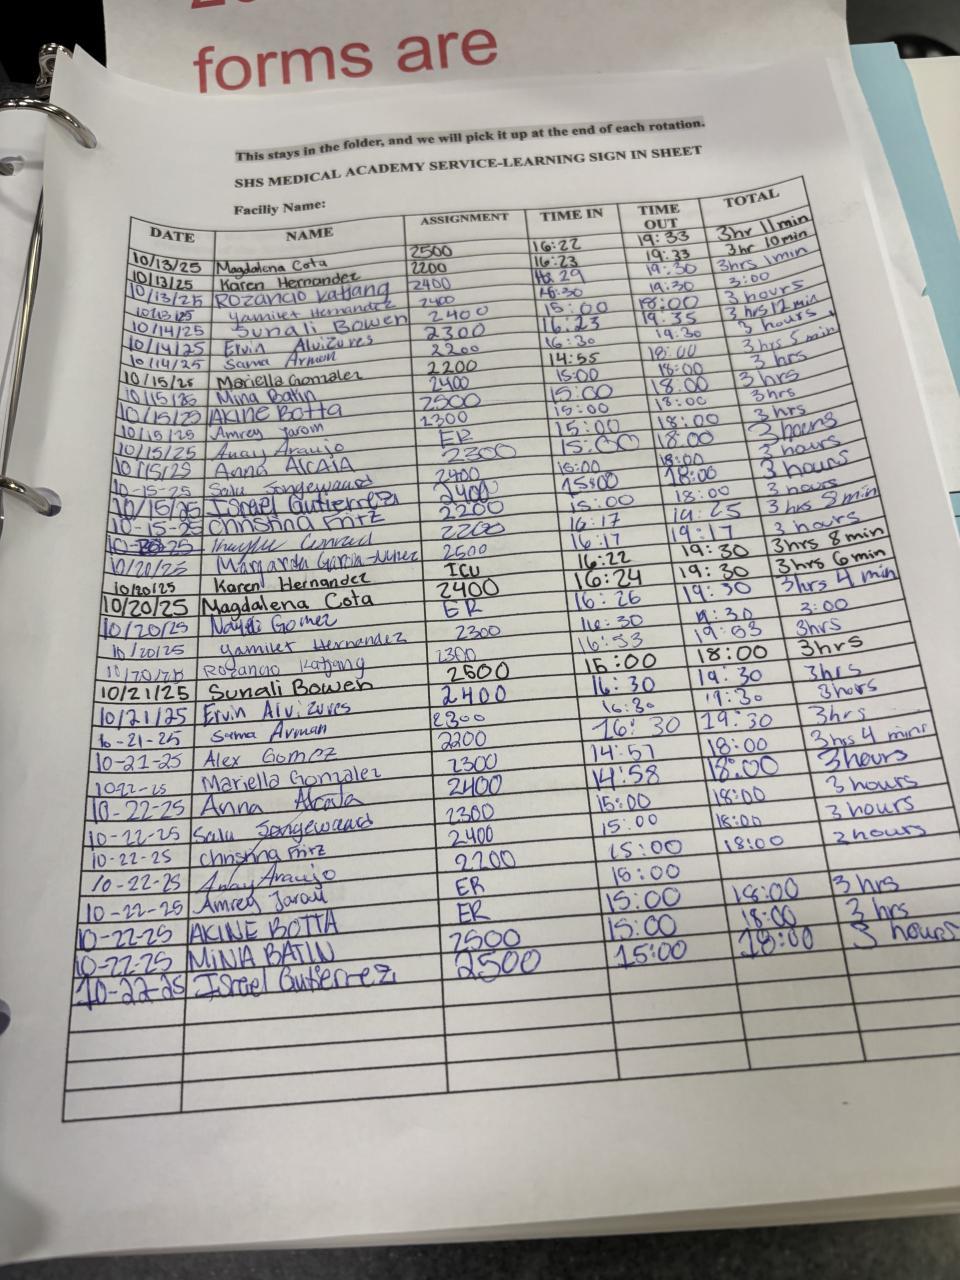 forms are
This stays in the folder, and we will pick it up at the end of each rotation.
SHS MEDICAL ACADEMY SERVICE-LEARNING SIGN IN SHEET
Faciliy Name:
DATE NAME ASSIGNMENT TIME IN TIME OUT TOTAL
10/13/25 Magdalena Cota 2500 16:22 19:33 3hr 11min
10/13/25 Karen Hernandez 2200 16:23 19:33 3hr 10min
10/13/25 Rozancio Katjang 2400 16:29 19:30 3hrs 1min
10/13/25 Yamilet Hernandez 2400 16:30 19:30 3:00
10/14/25 Sunali Bowen 2400 15:00 18:00 3 hours
10/14/25 Ervin Alvizures 2300 16:23 19:35 3 hrs 12 min
10/14/25 Sama Arman 2200 16:30 19:30 3 hours
10/15/25 Mariella Gomzalez 2200 14:55 18:00 3hrs 5 min
10/15/25 Mina Batin 2400 15:00 18:00 3 hrs
10/15/25 AKINE BOTTA 2500 15:00 18:00 3 hrs
10/15/25 Amrey 2300 15:00 18:00 3hrs
10/15/25 Anay Araujo ER 15:00 18:00 3 hrs
10/15/25 Anna Alcala 2300 15:00 18:00 3 hours
10-15-25 Salu Songewaard 2400 15:00 18:00 3 hours
10/15/25 Israel Gutierrez 2400 15:00 18:00 3 hours
10-15-25 Christina Fritz 2200 15:00 18:00 3 hours
Conrad 2200 16:17 19:25 3 hrs 8 min
10/20/25 Margarita Garcia-Nunez 2500 16:17 19:17 3 hours
10/20/25 Karen Hernandez ICU 16:22 19:30 3hrs 8 min
10/20/25 Magdalena Cota 2400 16:24 19:30 3hrs 6 min
10/20/25 Nayeli Gomez ER 16:26 19:30 3hrs 4 min
10/20/25 Yamilet Hernandez 2300 16:30 19:30 3:00
10/20/25 Rozancio Katjang 2300 16:53 19:53 3hrs
10/21/25 Sunali Bowen 2500 15:00 18:00 3hrs
10/21/25 Ervin Alvizures 2400 16:30 19:30 3hrs
10-21-25 Sama Arman 2300 16:30 19:30 3hours
10-21-25 Alex Gomez 2200 16:30 19:30 3hrs
1022-25 Mariella Gomzalez 2300 14:57 18:00 3hrs 4 mins
10-22-25 Anna Alcala 2400 14:58 18:00 3hours
10-22-25 Salu Songewaard 2300 15:00 18:00 3 hours
10-22-25 Christina Fritz 2400 15:00 18:00 3 hours
10-22-25 Anay Araujo 2200 15:00 18:00 3 hours
10-22-25 Amrey ER 15:00
10-22-25 AKINE BOTTA ER 15:00 18:00 3 hrs
10-22-25 MINA BATIN 2500 15:00 18:00 3 hrs
10-22-25 Israel Gutierrez 2500 15:00 18:00 3 hours